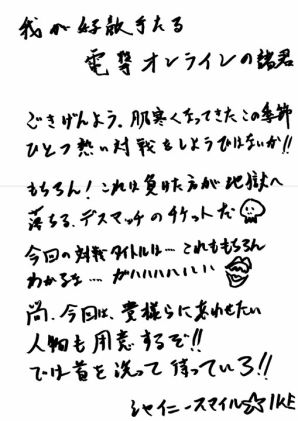 我が好敵手たる
電撃オンラインの諸君
ごきげんよう。肌寒くなってきたこの季節
ひとつ熱い対戦をしようではないか!!
もちろん!これは負けた方が地獄へ
落ちる、デスマッチのチケットだ
今回の対戦タイトルは…これももちろん
わかるな…ガハハハハハハ
尚、今回は、貴様らにあわせたい
人物も用意するぞ!!
では首を洗って待っていろ!!
シャイニースマイル☆IKE